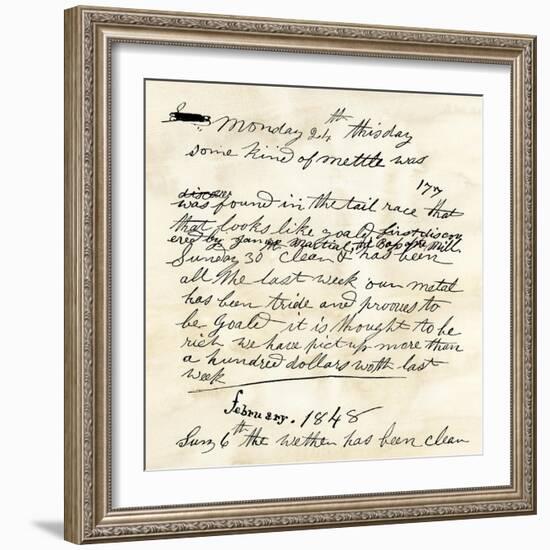 Monday 24th this day
some kind of mettle was
177
discover
was found in the tail race that
that looks like goald first discov
ered by James Martial, the Boss of the Mill
Sunday 30 clean & has been
all the last week our metal
has been tride and prooves to
be goald it is thought to be
rich we have pict up more than
a hundred dollars woth last
week
february. 1848
Sun 6th the wether has been clean